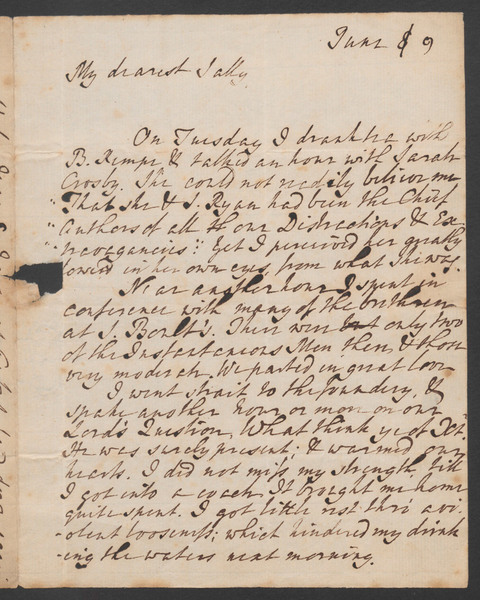 June 8 9
My dearest Sally
On Tuesday I drank tea with
B. Kemps & talked an hour with Sarah
Crosby. She could not readily believe me
"That she & S. Ryan had been the Chief
"Authors of all our Distractions & Ex-
"travagancies": Yet I perceived her greatly
lower'd in her own eyes, from what She was.
Near another hour I spent in
conference with many of the brethren
at J. Boult's. There were but only two
of the Instantaneous Men there, & those
very moderate. We parted in great love
I went strait to the foundery, &
spake another hour or more on our
Lord's Question, What think ye of Xt.
He was surely present; & warmed our
hearts. I did not miss my Strength, till
I got into a coach. It brought me home
quite spent. I got little rest thro' a vi-
-olent looseness; which hindered my drink-
-ing the waters next morning.